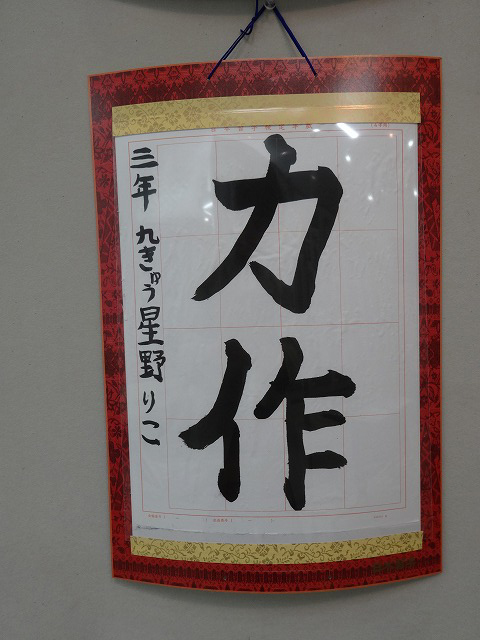 力作
三年 九きゅう 星野りこ